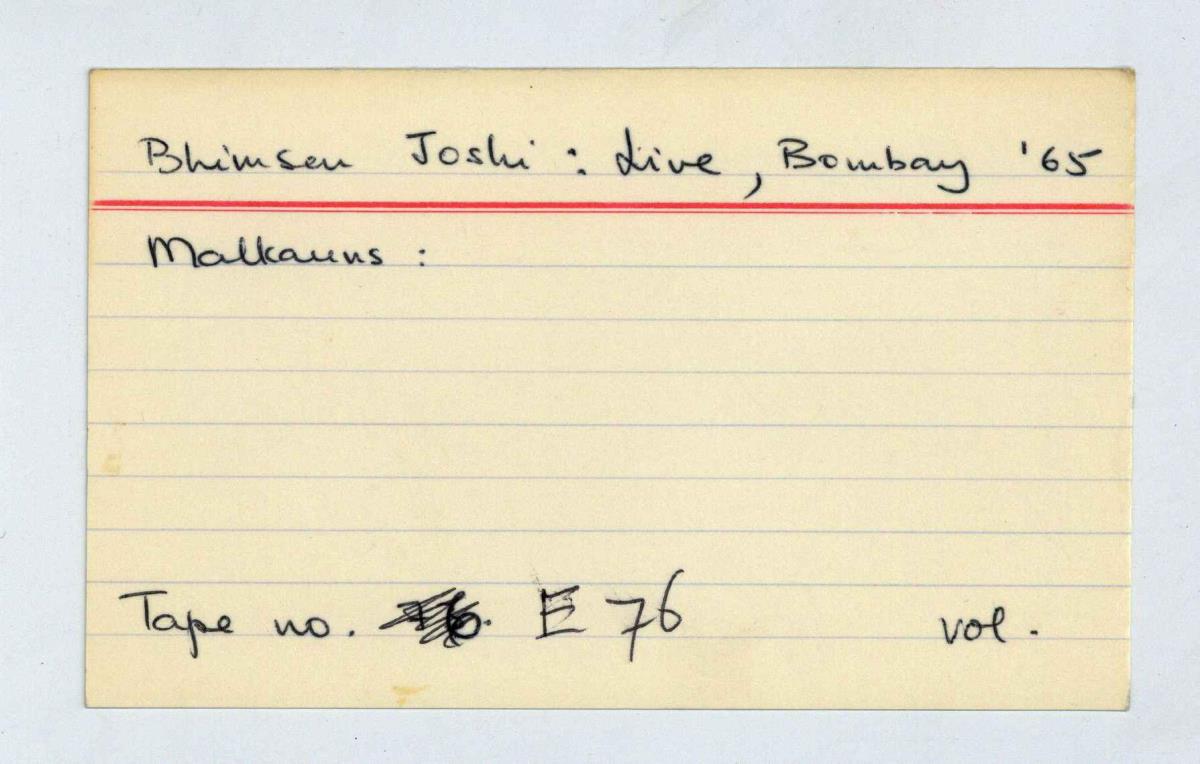 Bhimsen Joshi : Live, Bombay '65
Malkauns :
Tape no. E 76 vol.